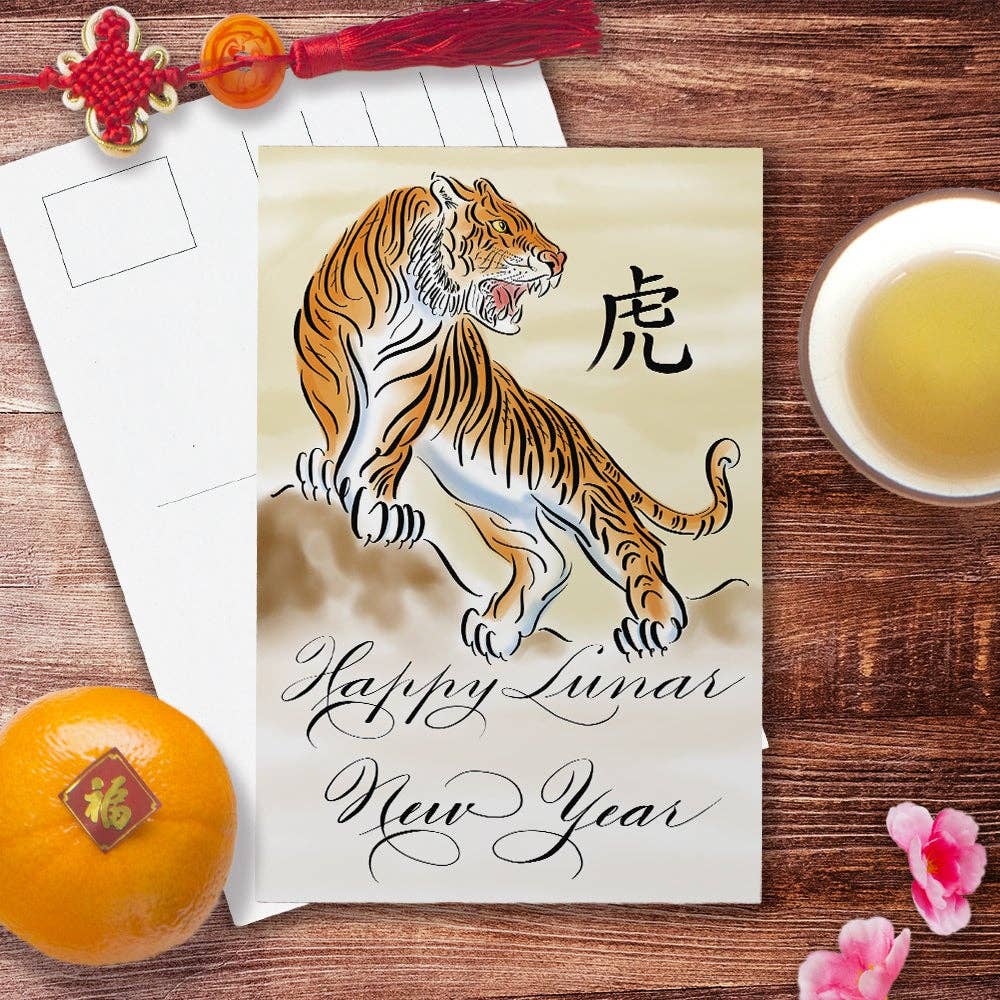 虎
Happy Lunar
New Year
福